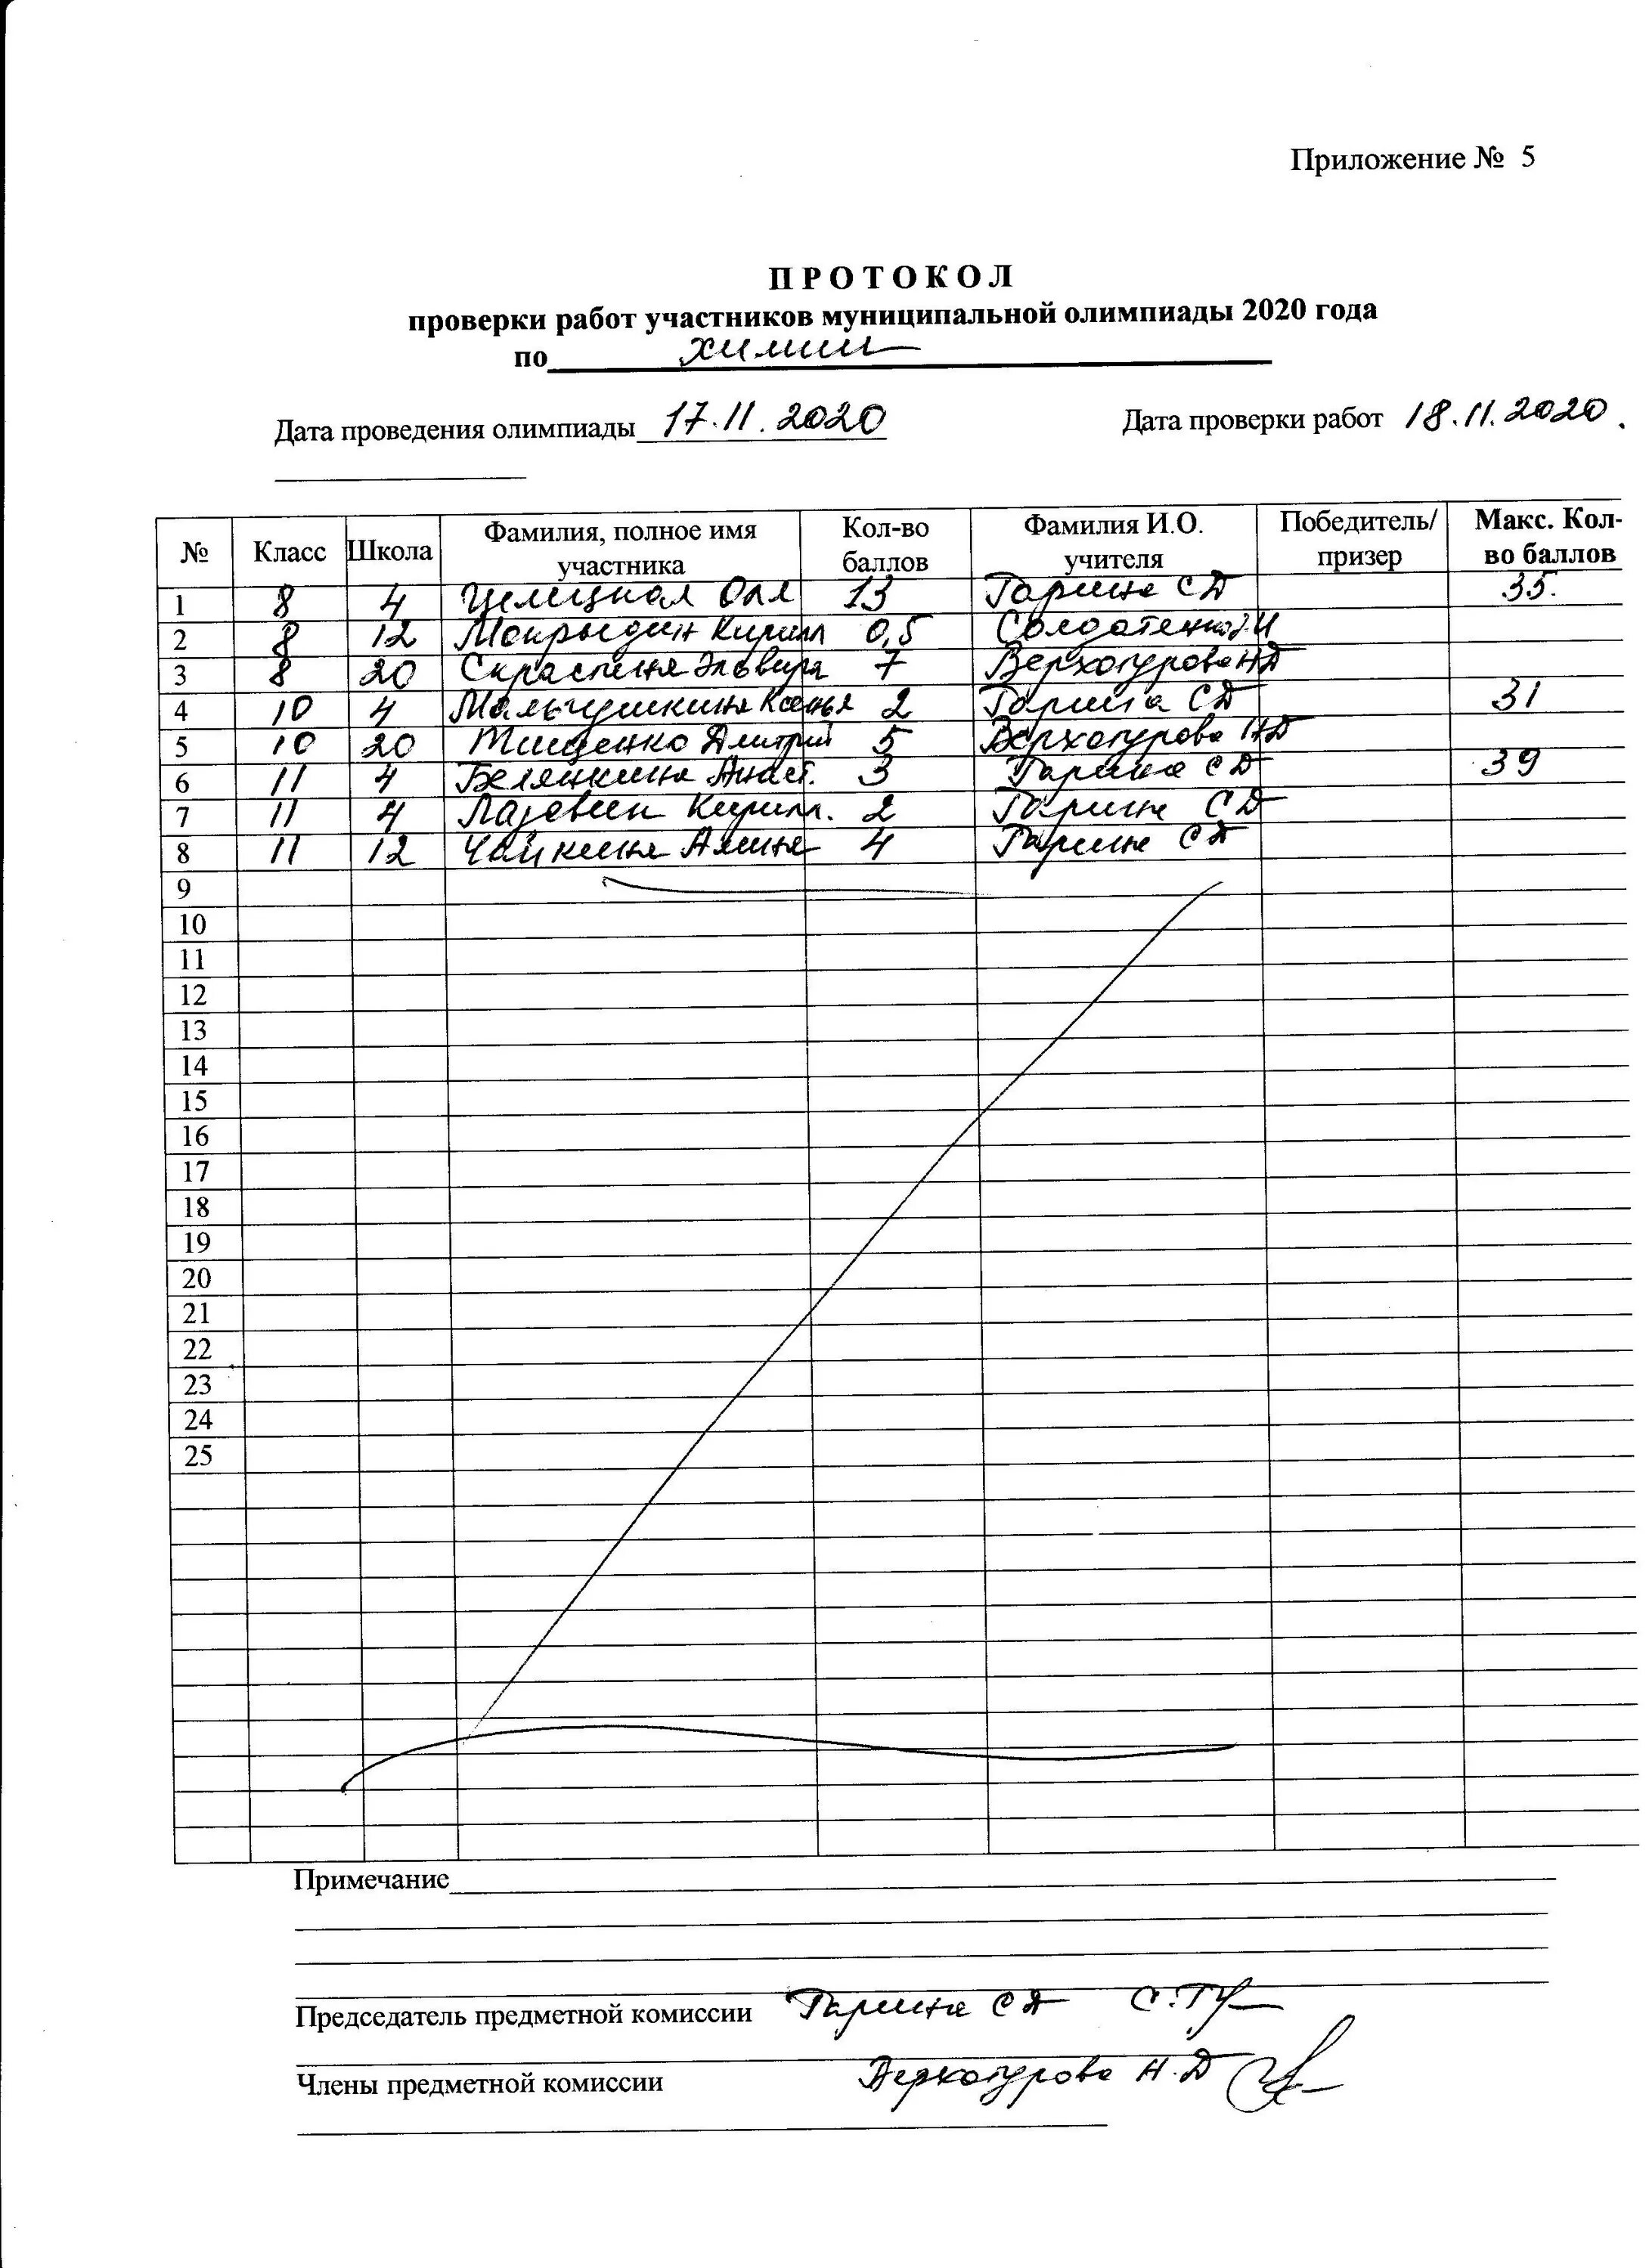 Приложение № 5
ПРОТОКОЛ
проверки работ участников муниципальной олимпиады 2020 года
по химии
Дата проведения олимпиады 17.11.2020 Дата проверки работ 18.11.2020.
№ Класс Школа Фамилия, полное имя участника Кол-во баллов Фамилия И.О. учителя Победитель/призер Макс. Кол-во баллов
1 8 4 13 Гарина СД 35.
2 8 12 Кирилл 0,5
3 8 20 Эльвира 7 Верхотурова НД
4 10 4 Мальгушкина 2 Гарина СД 31
5 10 20 Тищенко Дмитрий 5 Верхотурова НД
6 11 4 Беляцкина Анаст. 3 Гарина СД 39
7 11 4 Кирилл. 2 Гарина СД
8 11 12 Чайкина Алина 4 Гарина СД
9
10
11
12
13
14
15
16
17
18
19
20
21
22
23
24
25
Примечание
Председатель предметной комиссии Гарина СД
Члены предметной комиссии Верхотурова Н.Д